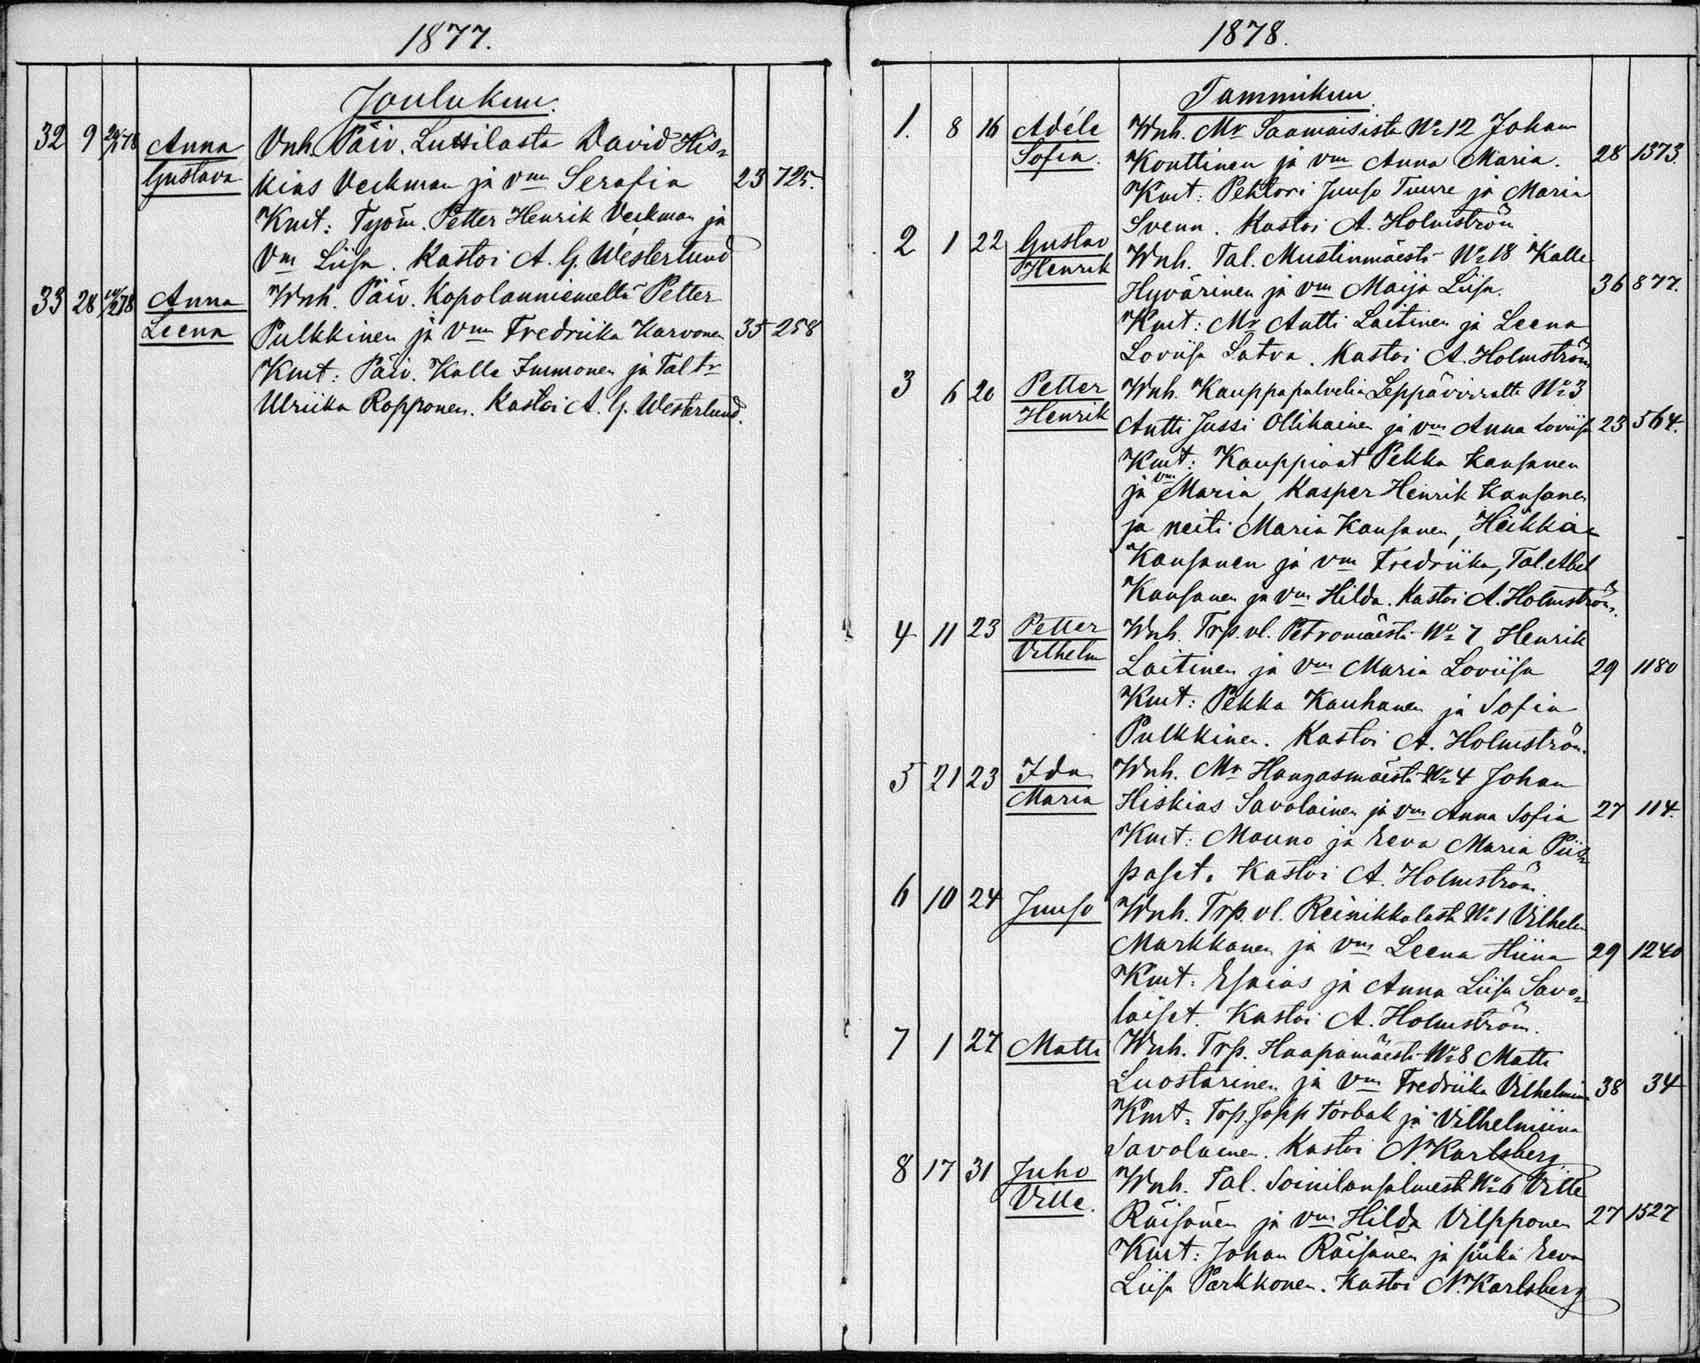 1877.
Joulukuu.
32 9 Anna Vnh. Päiv. Lussilasta David His-
Gustava kias Veckman ja vm Serafia 23 725.
Kmt: Työm. Petter Henrik Veckman ja
Vm Liisa. Kastoi A. G. Westerlund
33 28 Anna Wnh. Päiv. Kopolanniemeltä Petter
Leena Pulkkinen ja vm Fredriika Karvonen 35 258
Kmt: Päiv. Kalle Immonen ja Tal tr
Ulriika Ropponen. Kastoi A. G. Westerlund.
1878.
Tammikuu
1. 8 16 Adéle Wnh. Mr Saamaisista No 12 Johan
Sofia. Konttinen ja vm Anna Maria. 28 1373.
Kmt: Pehtori Juuso Tuure ja Maria
Svenn. Kastoi A. Holmström
2 1 22 Gustav Wnh. Tal. Mustinmäestä No 18 Kalle
Henrik Hyvärinen ja vm Maija Liisa. 36 877.
Kmt: Mr Antti Laitinen ja Leena
Loviisa Latva. Kastoi A. Holmström
3 6 20 Petter Wnh. Kauppapalvelia Leppävirralta No 3
Henrik Antti Jussi Ollikainen ja vm Anna Loviisa 23 564.
Kmt: Kauppiaat Pekka Kansanen
ja vm Maria, Kasper Henrik Kansanen
ja neiti Maria Kansanen, Heikki
Kansanen ja vm Fredriika, Tal. Abel
Kansanen ja vm Hilda. Kastoi A. Holmström.
4 11 23 Petter Wnh. Trp. vl. Petromäestä No 7 Henrik
Vilhelm Laitinen ja vm Maria Loviisa 29 1180
Kmt: Pekka Kauhanen ja Sofia
Pulkkinen. Kastoi A. Holmström.
5 21 23 Ida Wnh. Mr Hangasmäestä No 4 Johan
Maria Hiskias Savolainen ja vm Anna Sofia 27 114.
Kmt: Mauno ja Eeva Maria Piip-
paset. Kastoi A. Holmström.
6 10 24 Juuso Wnh. Trp. vl. Reinikkalasta No 1 Vilhelm
Markkanen ja vm Leena Stiina 29 1240
Kmt: Esaias ja Anna Liisa Savo-
laiset. Kastoi A. Holmström.
7 1 27 Matti Wnh. Trp. Haapamäestä No 8 Matti
Luostarinen ja vm Fredriika Vilhelmiina 38 34
Kmt: Trp. Torbak ja Vilhelmiina
Savolainen. Kastoi N. Karlsberg
8 17 31 Juho Wnh. Tal. Soinilansalmesta No 6 Ville
Ville. Räisänen ja vm Hilda Vilpponen 27 1527
Kmt: Johan Räisänen ja piika Eeva
Liisa Parkkonen. Kastoi N. Karlsberg